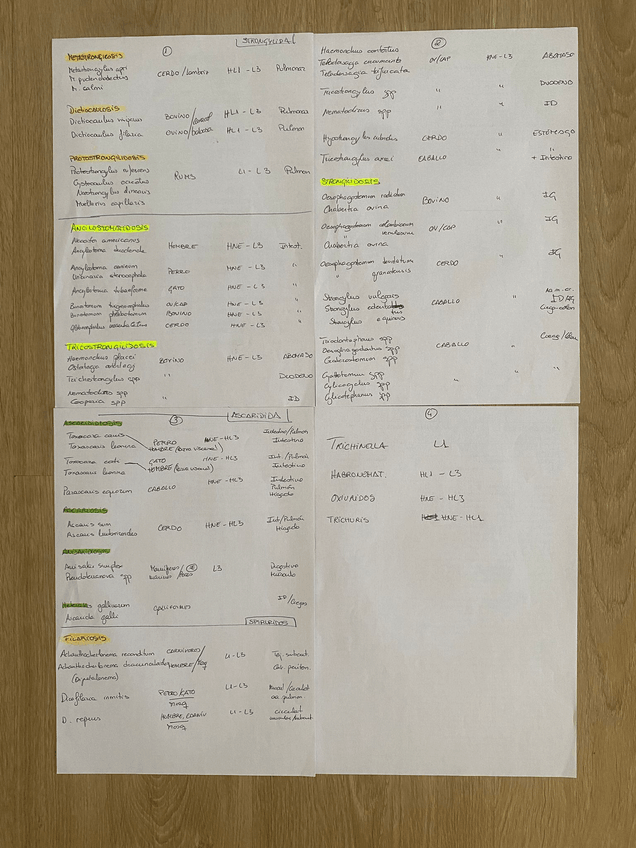 ① STRONGYLIDA
METASTRONGILOSIS
Metastrongylus apri CERDO/lombriz HL1 - L3 Pulmonar
M. pudendotectus
M. salmi
DICTIOCAULOSIS
Dictiocaulus viviparus BOVINO HL1 - L3 Pulmonar
Dictiocaulus filaria OVINO HL1 - L3 Pulmon
PROTOSTRONGILIDOSIS
Protostrongylus rufescens RUMS L1 - L3 Pulmon
Cystocaulus ocreatus
Neostrongylus linearis
Muellerius capillaris
ANCILOSTOMATIDOSIS
Necator americanus HOMBRE HNE - L3 Intest.
Ancylostoma duodenale
Ancylostoma caninum PERRO HNE - L3 "
Uncinaria stenocephala
Ancylostoma tubaeforme GATO HNE - L3 "
Bunostomum trigonocephalum OV/CAP HNE - L3 "
Bunostomum phlebotomum BOVINO HNE - L3 "
CERDO HNE - L3
TRICOSTRONGILIDOSIS
Haemonchus placei BOVINO HNE - L3 ABOMASO
Ostertagia ostertagi
Trichostrongylus spp " DUODENO
Nematodirus spp " ID
Cooperia spp
②
Haemonchus contortus OV/CAP HNE - L3 ABOMASO
Teladorsagia circumcincta
Teladorsagia trifurcata
Tricostrongylus spp " " DUODENO
Nematodirus spp " " ID
Hyostrongylus rubidus CERDO " ESTÓMAGO
Tricostrongylus axei CABALLO " " + Intestino
STRONGILIDOSIS
Oesophagostomum radiatum BOVINO " IG
Chabertia ovina
Oesophagostomum columbianum OV/CAP " IG
" venulosum
Chabertia ovina
Oesophagostomum dentatum CERDO IG
" granatensis
Strongylus vulgaris CABALLO "
Strongylus edentatus
Strongylus equinus
Triodontophorus spp CABALLO " Ciego/Colon
Oesophagodontus spp
Gyalocephalus spp
Cyathostomum spp " "
Cylicocyclus spp
Cylicostephanus spp
③ ASCARIDIDA
Toxocara canis PERRO HNE - HL3 Intestino/Pulmón
Toxascaris leonina HOMBRE (larva visceral) Intestino
Toxocara cati GATO HNE - HL3 Int./Pulmón
Toxascaris leonina HOMBRE (larva visceral) Intestino
Parascaris equorum CABALLO HNE - HL3 Intestino
Pulmón
Hígado
ASCARIOSIS
Ascaris suum CERDO HNE - HL3 Int/Pulmón
Ascaris lumbricoides Hígado
ANISAKIDOSIS
Anisakis simplex Mamíferos L3 Digestivo
Pseudoterranova spp Músculo
Heterakis gallinarum GALLIFORMES ID/Ciegos
Ascaridia galli
SPIRURIDOS
FILARIOSIS
Acanthocheilonema reconditum CARNÍVORO/ L1 - L3 Tej. subcut.
Acanthocheilonema dracunculoides HOMBRE/ Cav. periton.
(Dipetalonema)
Dirofilaria immitis PERRO/GATO L1 - L3
D. repens HOMBRE, L1 - L3
④
TRICHINELLA L1
HABRONEMAT. HL1 - L3
OXIURIDOS HNE - HL3
TRICHURIS HNE - HL1